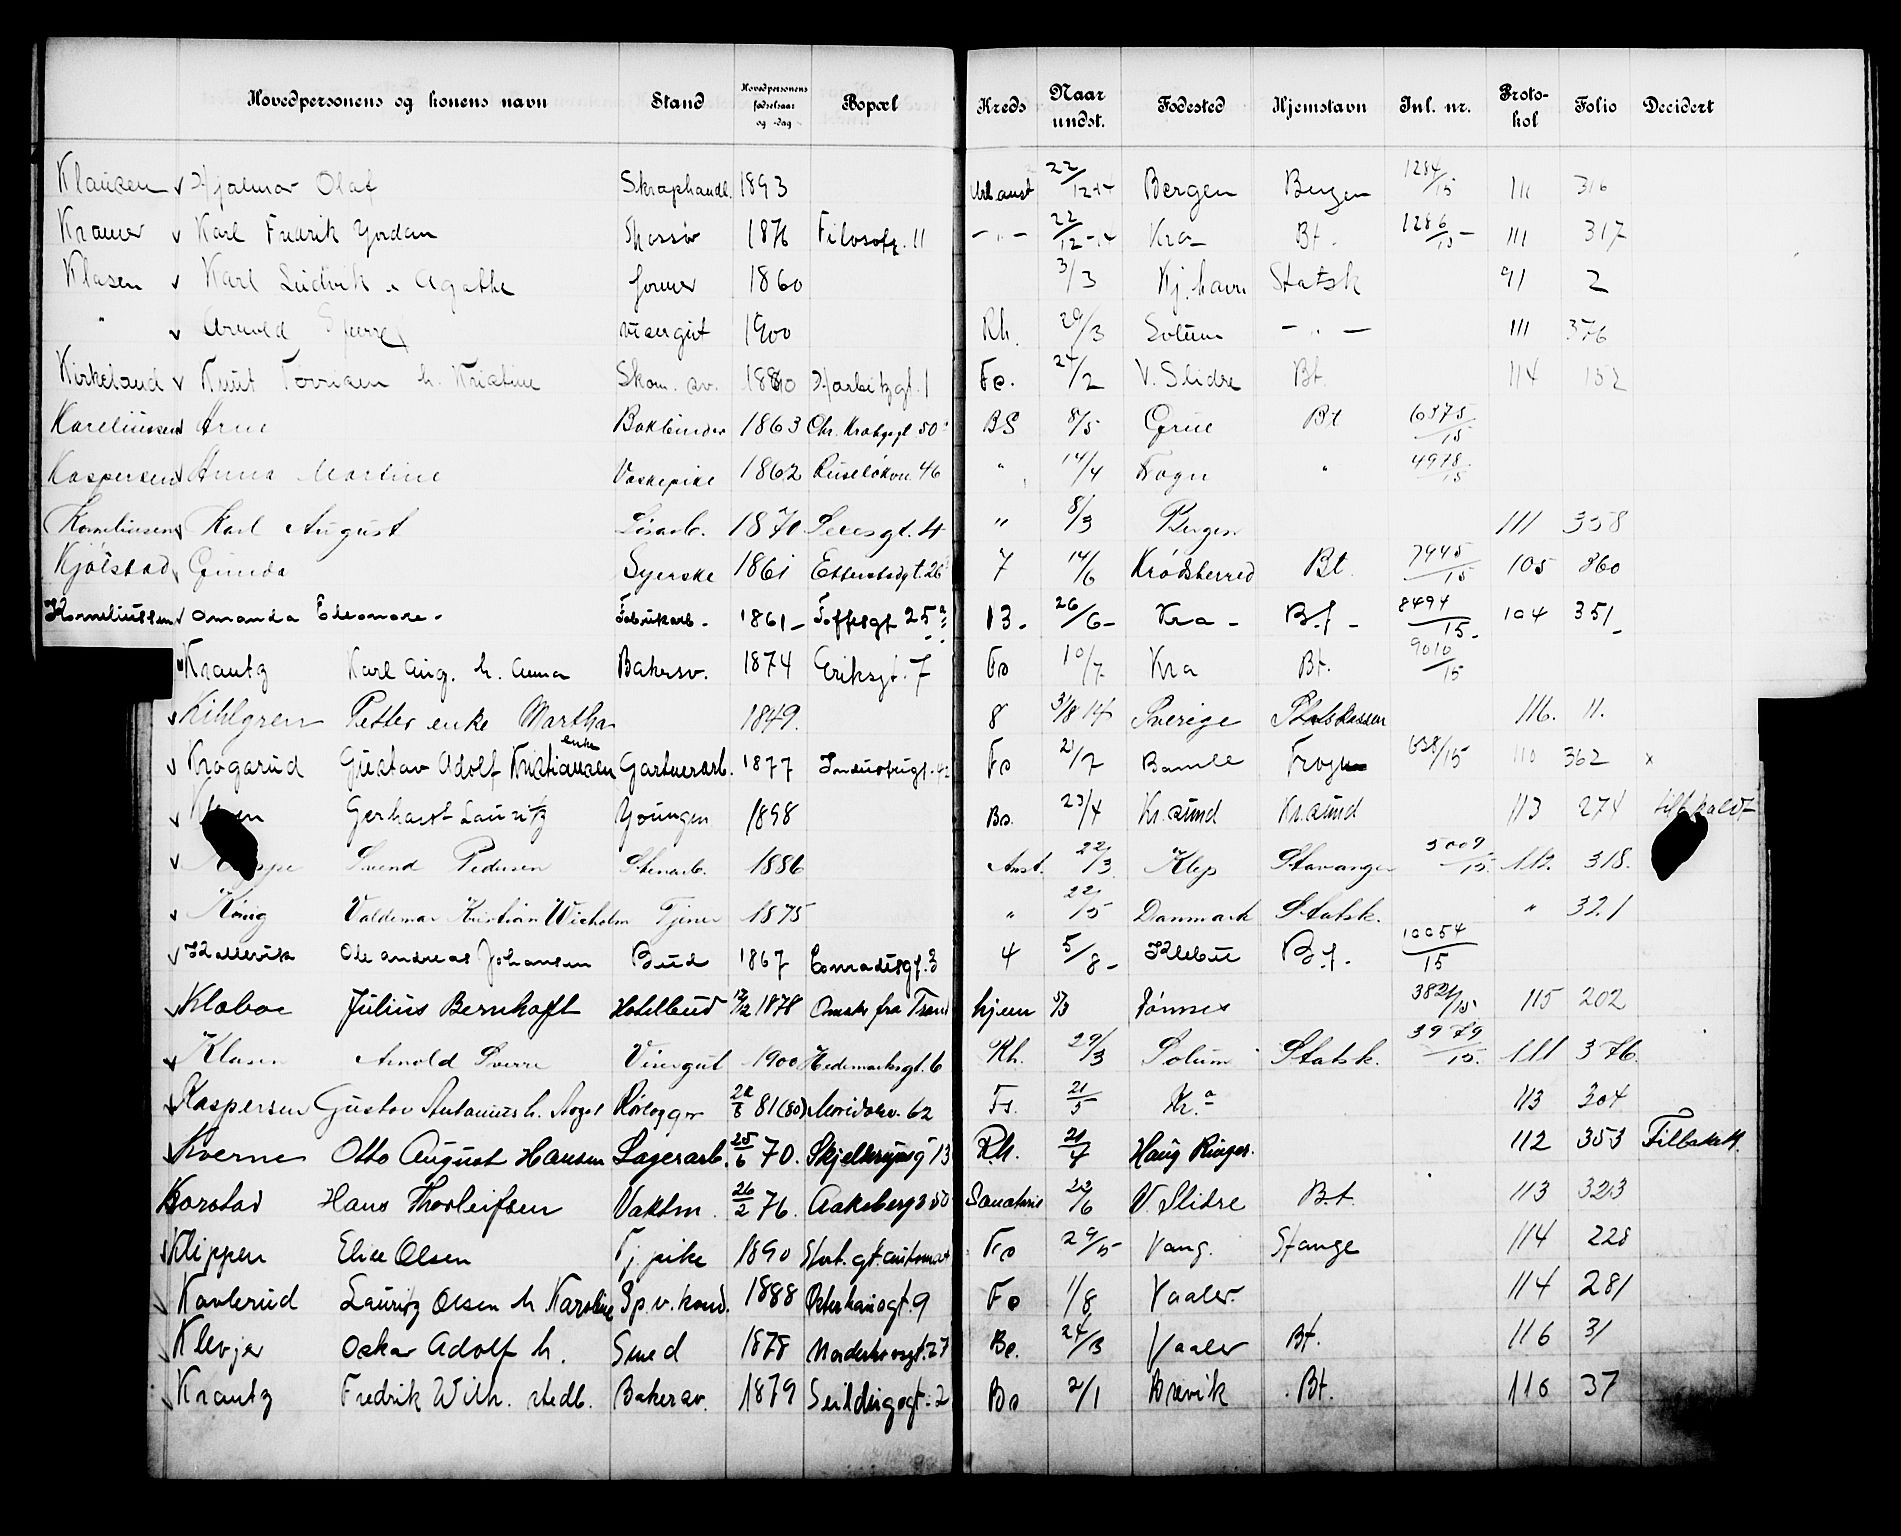 Hovedpersonens og konens navn Stand Hovedpersonens fødselsaar og -dag Bopæl Kreds Naar undst. Fødested Hjemstavn Inl. nr. Protokol Folio Decidert
Klausen Hjalmar Olaf Skraphandl. 1893 22/12-14 Bergen Bergen 1284/15 111 316
Kramer Karl Fredrik Jordan 1876 Filosofg. 11 -"- 22/12-14 Kra Bt. 1286/15 111 317
Klasen Karl Ludvik Agathe former 1860 3/3 Kj.havn Statsk 91 2
" visergut 1900 Rh. 29/3 Solum -"- 111 376
Kirkeland Knut h. Kristine Skom. sv. Harbitzgt. 1 Fo. 24/2 V. Slidre Bt. 114 152
Karelius­sen Arne Bokbinder 1863 Chr. Krohgsgt 50 BS 8/5 Grue Bt 6375/15
Kaspersen Anna Martine Vaskepike 1862 Ruseløkvn. 46 " 14/4 " 4978/15
Karl August 1870 4 " 8/3 Bergen 111 358
Kjølstad Gunda Syerske 1861 Etterstadgt. 26 7 14/6 Krødsherred Bt. 7945/15 105 860
Korneliussen Amanda Eleonore Fabrikarb. 1861 Toftesgt 25 13 26/6 Kra Bt 8494/15 104 351
Krantz Karl Aug. h. Anna Bakersv. 1874 Eriksgt. 7 Fo 10/7 Kra Bt. 9010/15
Kihlgren Petter enke Martha 1849. 8 31/8 14 Sverige Statskassen 116. 11.
Krogsrud Gustav Adolf Kristiansen enke Gartnerarb. 1877 Industrigt. 42 Fo 21/7 Bamle Frogn 638/15 110 362 x
Gerhard Lauritz Youngen 1898 Bo. 23/4 Kr.sund Kr.sund 113 274
Svend Pedersen Stenarb. 1886 Anst. 22/3 Klep Stavanger 5009/15 112. 318.
König Valdemar Kristian Wilhelm Tjener 1875 " 22/5 Danmark Statsk. " 321
Ole Andreas Johansen Bud 1867 Conradisgt. 3 4 5/8 Klebu Bt. 10054/15
Kloboe Julius Bernhoft Hotelbud 12/12 1878 Omstr fra hjem 5/3 3821/15 115 202
Klasen Arnold Sverre Visergut 1900 Hedemarksgt. 6 Rh. 29/3 Solum Statsk. 3979/15 111 376.
Kaspersen Gustav Antonius h. Rørlegger 81 (80) Maridalsv. 62 Fo. 21/5 Kr.a 113 304
Kverne Otto August Hansen Lagerarb. 25/6 70. 13 Rh. 21/4 Haug Ringer. 112 353 Tilbakek.
Korstad Hans Thorleifsen Vaktm. 26/2 76. Akersberg 50 22/6 V. Slidre B.t. 113 323
Klippen Elise Olsen Tj.pike 1890 Stort.gt. automat Fo 29/5 Vang. Stange 114 228
Kavlerud Lauritz Olsen h Karoline Sp.v.kond. 1888 Østerhausgt. 9 Fo 1/8 Vaaler. 114 281
Klevjer Oskar Adolf h. Smed 1878 Norderhovsgt. 27 Bo. 24/3 Vaaler Bt. 116 31
Krantz Fredrik Wilh. Bakersv. 1879 Seilduksgt. 2 Bo 2/1 Brevik Bt. 116 37